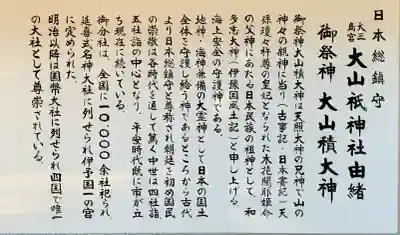 日本総鎮守
大三島宮 大山祇神社由緒
御祭神 大山積大神
御祭神大山積大神は天照大神の兄神で山の
神々の親神に当り(古事記・日本書記)天
孫瓊々杵尊の皇妃となられた木花開耶姫命
の父神にあたる日本民族の祖神として、和
多志大神(伊豫国風土記)と申し上げる。
海上安全の守護神である。
地神・海神兼備の大霊神として日本の国土
全体を守護し給う神であるところから古代
より日本総鎮守と尊称され朝廷を初め国民
の崇敬は各時代を通して篤く中世は四社詣
五社詣の中心となり、平安時代既に市が立
ち現在に続いている。
御分社は、全国に一〇、〇〇〇余社祀られ
延喜式名神大社に列せられ伊予国一の宮
に定められた。
明治以降は国幣大社に列せられ四国で唯一
の大社として尊崇されている。